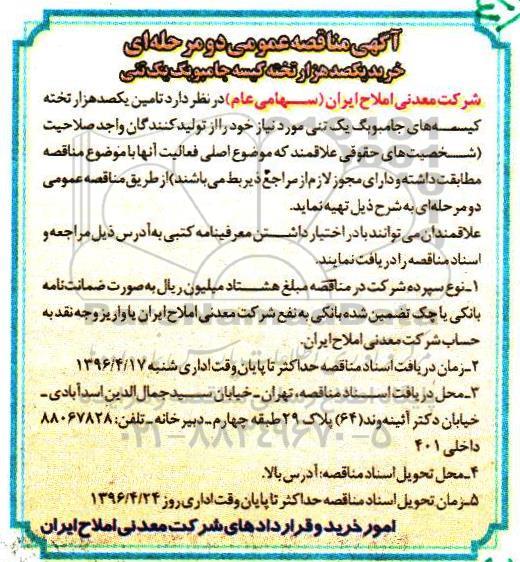 آگهی مناقصه عمومی دو مرحله‌ای
خرید یکصد هزار تخته کیسه جامبوبگ یک تنی
شرکت معدنی املاح ایران (سهامی عام) در نظر دارد تامین یکصد هزار تخته
کیسه‌های جامبوبگ یک تنی مورد نیاز خود را از تولید کنندگان واجد صلاحیت
(شخصیت‌های حقوقی علاقمند که موضوع اصلی فعالیت آنها با موضوع مناقصه
مطابقت داشته و دارای مجوز لازم از مراجع ذیربط می‌باشند) از طریق مناقصه عمومی
دو مرحله‌ای به شرح ذیل تهیه نماید.
علاقمندان می توانند با در اختیار داشتن معرفینامه کتبی به آدرس ذیل مراجعه و
اسناد مناقصه را دریافت نمایند.
۱ـ نوع سپرده شرکت در مناقصه مبلغ هشتاد میلیون ریال به صورت ضمانت‌نامه
بانکی یا چک تضمین شده بانکی به نفع شرکت معدنی املاح ایران یا واریز وجه نقد به
حساب شرکت معدنی املاح ایران.
۲ـ زمان دریافت اسناد مناقصه حداکثر تا پایان وقت اداری شنبه ۱۳۹۶/۴/۱۷
۳ـ محل دریافت اسناد مناقصه، تهران ـ خیابان سیدجمال‌الدین اسدآبادی ـ
خیابان دکتر آئینه‌وند (۶۴) پلاک ۲۹ طبقه چهارم ـ دبیرخانه ـ تلفن: ۸۸۰۶۷۸۲۸
داخلی ۴۰۱
۴ـ محل تحویل اسناد مناقصه: آدرس بالا.
۵ـ زمان تحویل اسناد مناقصه حداکثر تا پایان وقت اداری روز ۱۳۹۶/۴/۲۴
امور خرید و قراردادهای شرکت معدنی املاح ایران
۰۲۱-۸۸۳۴۹۶۷۰-۵